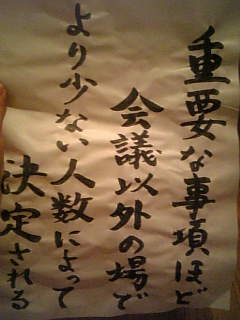 重要な事項ほど
会議以外の場で
より少ない人数によって
決定される